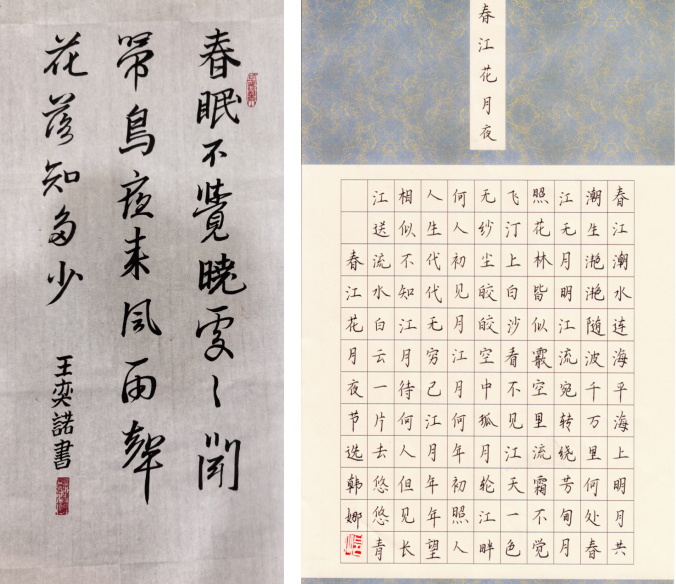 春眠不覺曉處々聞
啼鳥夜来風雨聲
花落知多少
王奕諾書
春江花月夜
春江潮水连海平海上明月共
潮生滟滟随波千万里何处春
江无月明江流宛转绕芳甸月
照花林皆似霰空里流霜不觉
飞汀上白沙看不见江天一色
无纱尘皎皎空中孤月轮江畔
何人初见月江月何年初照人
人生代代无穷已江月年年望
相似不知江月待何人但见长
江送流水白云一片去悠悠青
春江花月夜节选韩娜